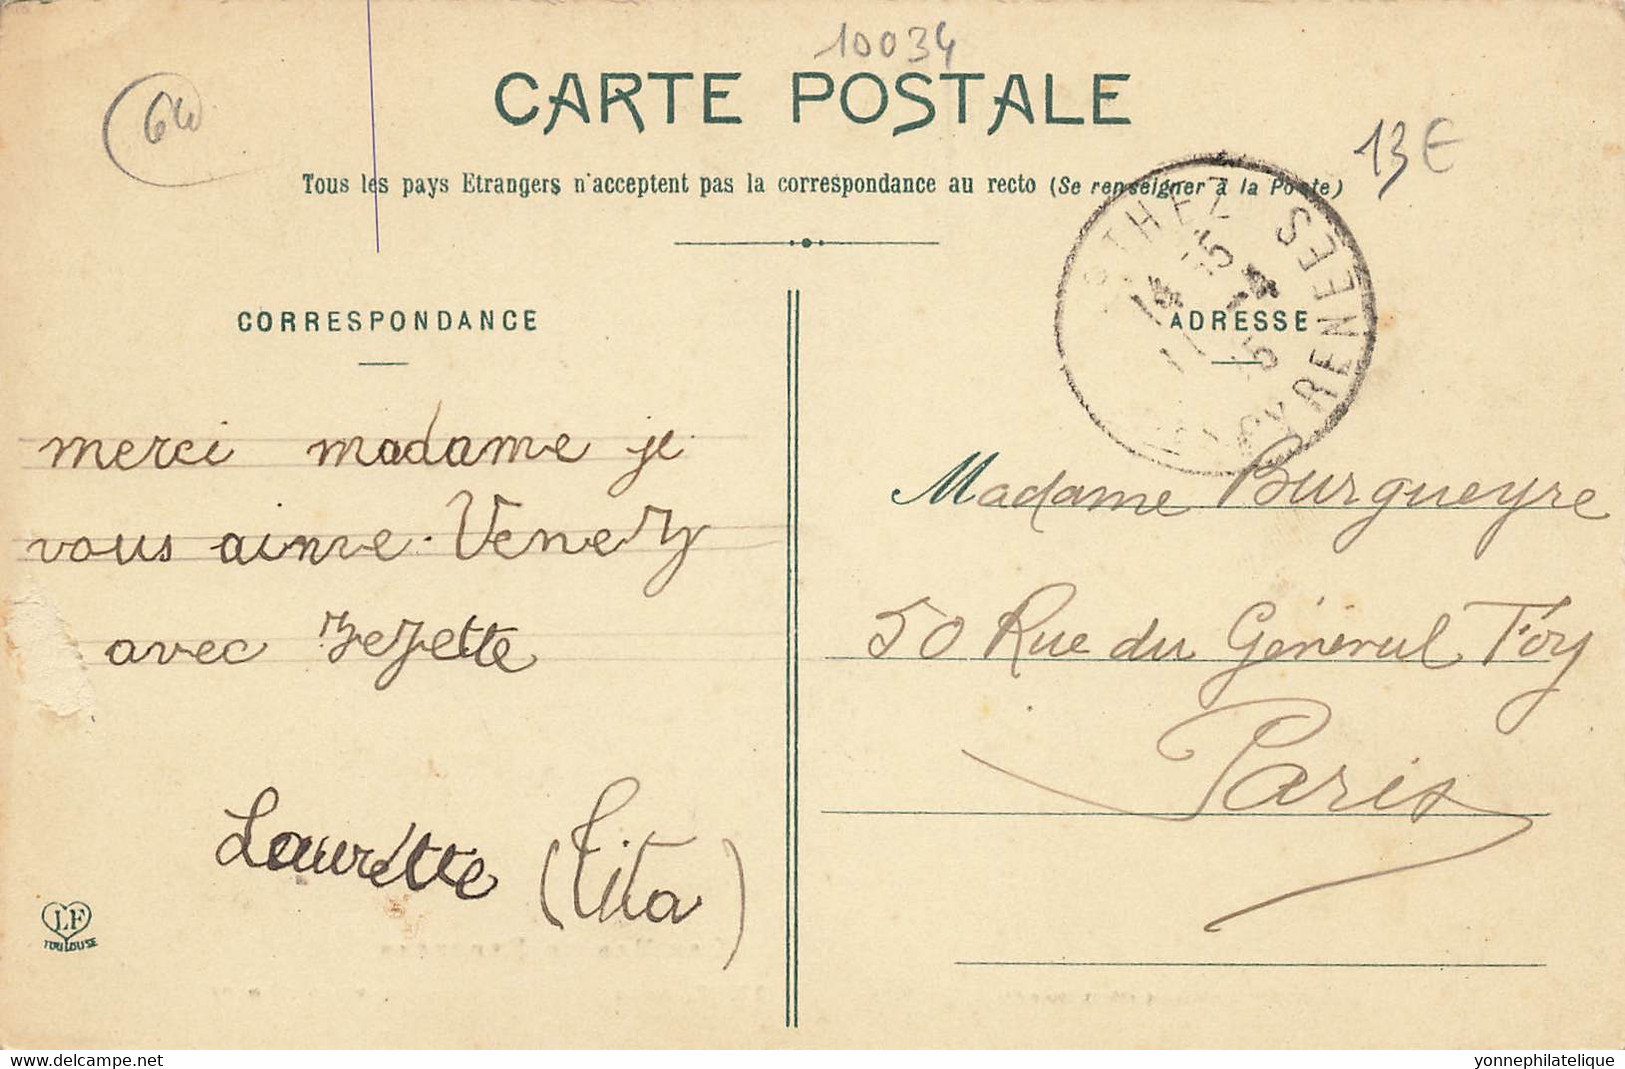 10034
64
CARTE POSTALE
13€
Tous les pays Etrangers n'acceptent pas la correspondance au recto (Se renseigner à la Poste)
ORTHEZ
PYRENEES
14 15
11 -4
15
CORRESPONDANCE
ADRESSE
merci madame je
vous aime. Venez
avec Zezette
Laurette (Tita)
Madame Burgueyre
50 Rue du Général Foy
Paris
LF
TOULOUSE
delcampe.net
yonnephilatelique